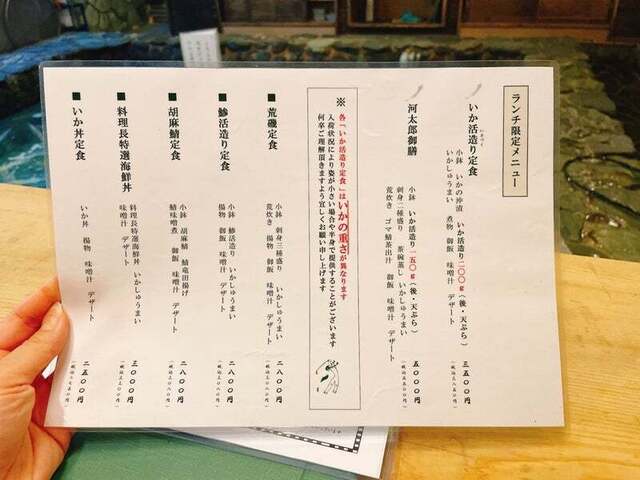 ランチ限定メニュー
いか活造り定食
小鉢 いかの沖漬 いか活造り二〇〇g(後・天ぷら)
いかしゅうまい 煮物 御飯 味噌汁 デザート
三五〇〇円
(税込三八五〇円)
河太郎御膳
小鉢 いか活造り一五〇g(後・天ぷら)
刺身二種盛り 茶碗蒸し いかしゅうまい
荒炊き ゴマ鯖茶出汁 御飯 味噌汁 デザート
五〇〇〇円
(税込五五〇〇円)
※
各「いか活造り定食」はいかの重さが異なります
入荷状況により姿が小さい場合や半身で提供することがございます
何卒ご理解頂きますよう宜しくお願い申し上げます
■荒磯定食
小鉢 刺身三種盛り いかしゅうまい
荒炊き 揚物 御飯 味噌汁 デザート
二八〇〇円
(税込三〇八〇円)
■鯵活造り定食
小鉢 鯵活造り いかしゅうまい
揚物 御飯 味噌汁 デザート
二八〇〇円
(税込三〇八〇円)
■胡麻鯖定食
小鉢 胡麻鯖 鯖竜田揚げ
鯖味噌煮 御飯 味噌汁 デザート
二八〇〇円
(税込三〇八〇円)
■料理長特選海鮮丼
料理長特選海鮮丼 いかしゅうまい
味噌汁 デザート
三〇〇〇円
(税込三三〇〇円)
■いか丼定食
いか丼 揚物 味噌汁 デザート
二五〇〇円
(税込二七五〇円)